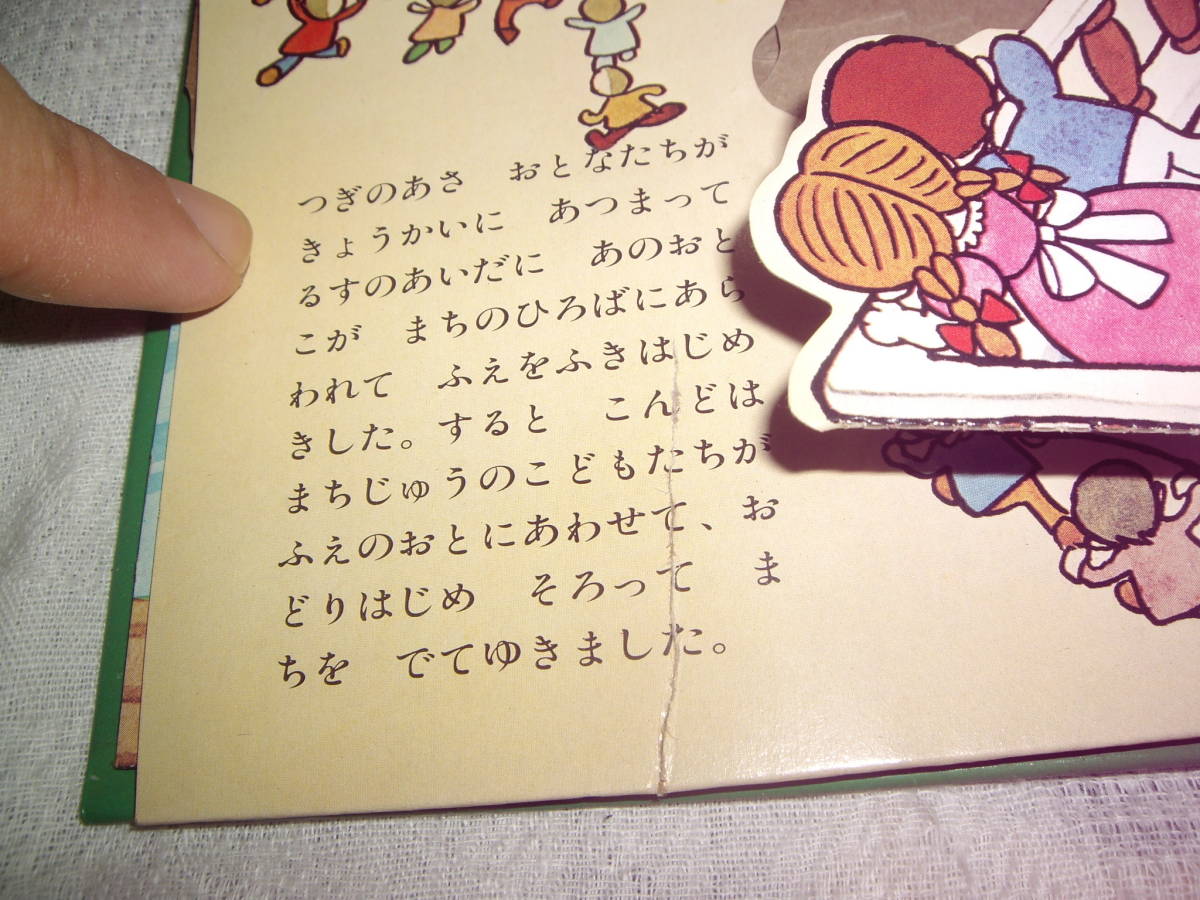 つぎのあさ　おとなたちが
きょうかいに　あつまって
るすのあいだに　あのおと
こが　まちのひろばにあら
われて　ふえをふきはじめ
きした。すると　こんどは
まちじゅうのこどもたちが
ふえのおとにあわせて、お
どりはじめ　そろって　ま
ちを　でてゆきました。